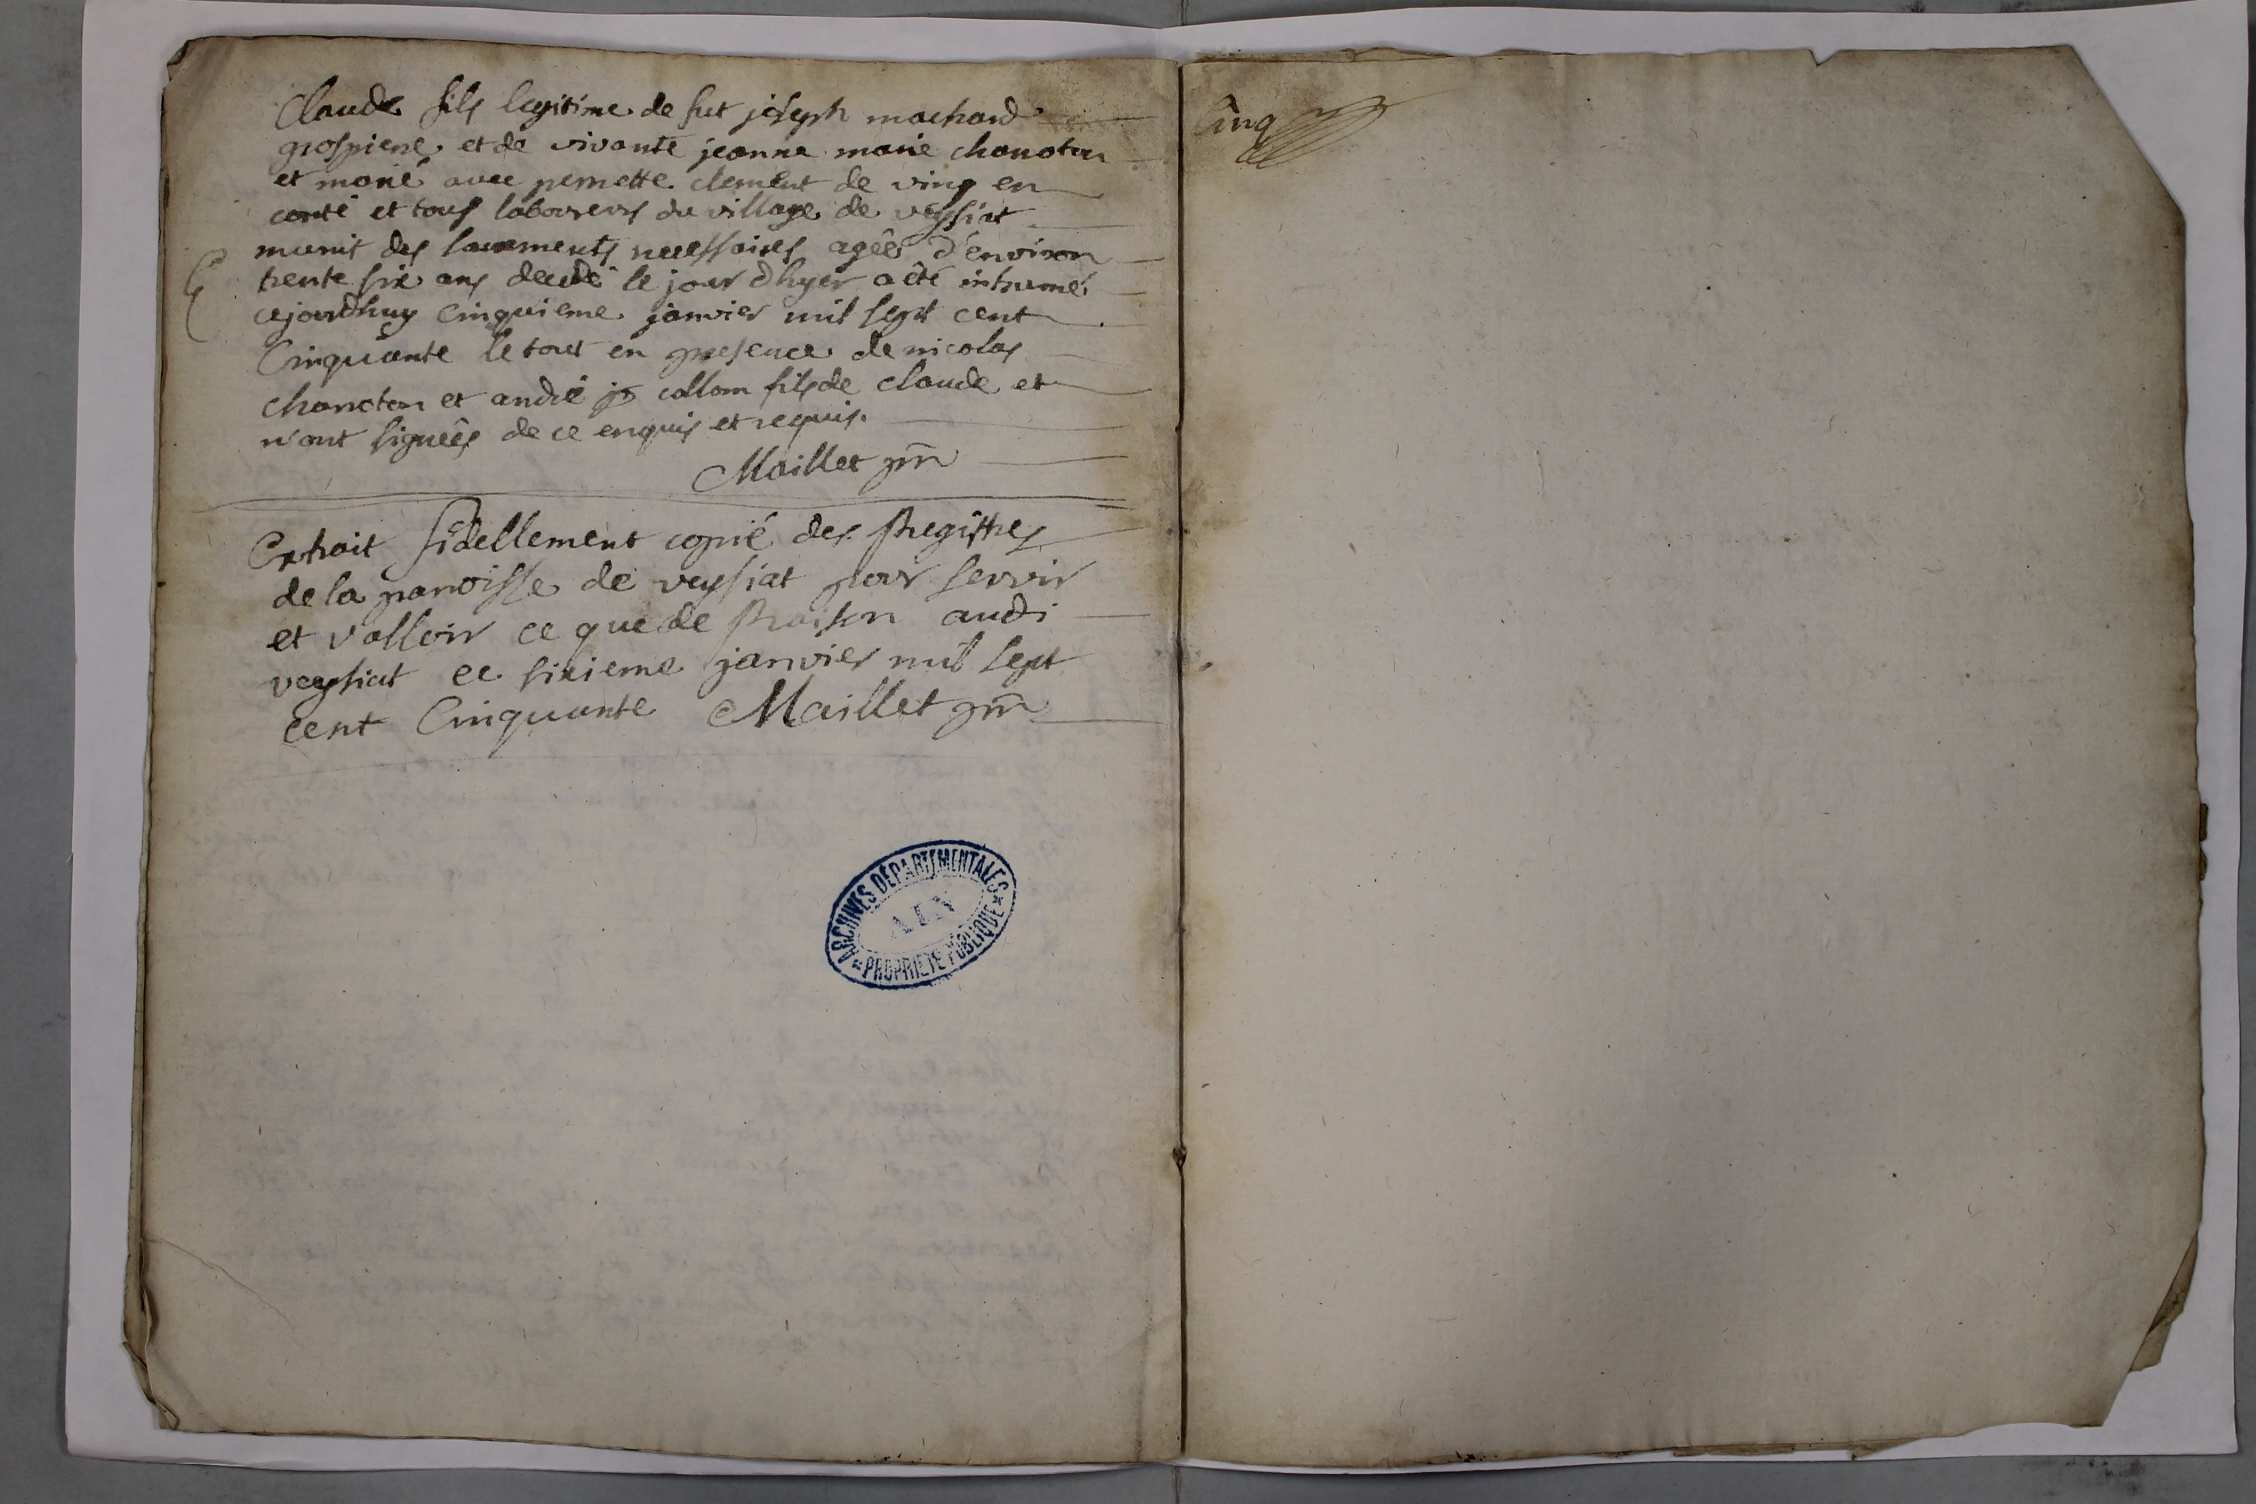 Claude fils legitime de fut joseph machard
grospiere et de vivante jeanne marie chanoton
et marié avec pernette clement de ving en
conté et tous laboureurs du village de veysiat
munit des sacrements necessaires agéé d'environ
trente six ans decedé le jour d'hyer a êté inhumé
cejourdhuy cinquieme janvier mil sept cent
Cinquante le tout en presence de nicolas
chanoton et andré js collom fils de claude et
n'ont signéés de ce enquis et requis.
Maillet prr̃
Extrait fidellement copié des Registres
de la parroisse de veysiat pour servir
et valloir ce que de Raison audi
veysiat ce sixieme janvier mil sept
cent Cinquante Maillet prr̃
ARCHIVES DÉPARTEMENTALES
AIN
PROPRIÉTÉ PUBLIQUE
Cinq